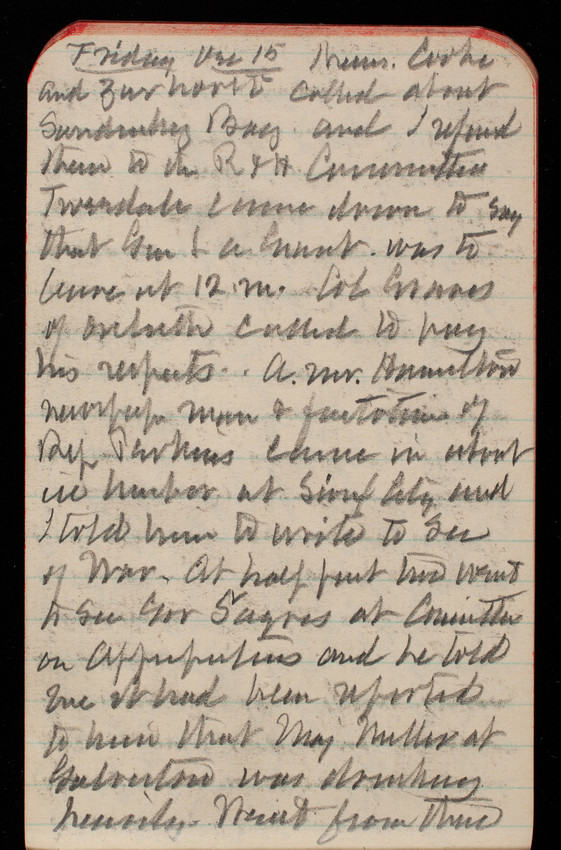 Friday Dec 15 Messrs. Cooke
and Zurhorst called about
Sandusky Bay and I refered
them to the R & H Committee
Tweedale came down to say
that Gen L. A. Grant was to
leave at 12 m. Col Graves
of called to pay
his respects. A. Mr. Hamilton
newspap man & factotum of
Rep Perkins came in about
ice harbor at Sioux City and
I told him to write to Sec
of War. At half past two went
to see Gov Sayres at Committee
on Appropriations and he told
me it had been reported
to him that Maj. Miller at
Galveston was drinking
heavily. Went from there